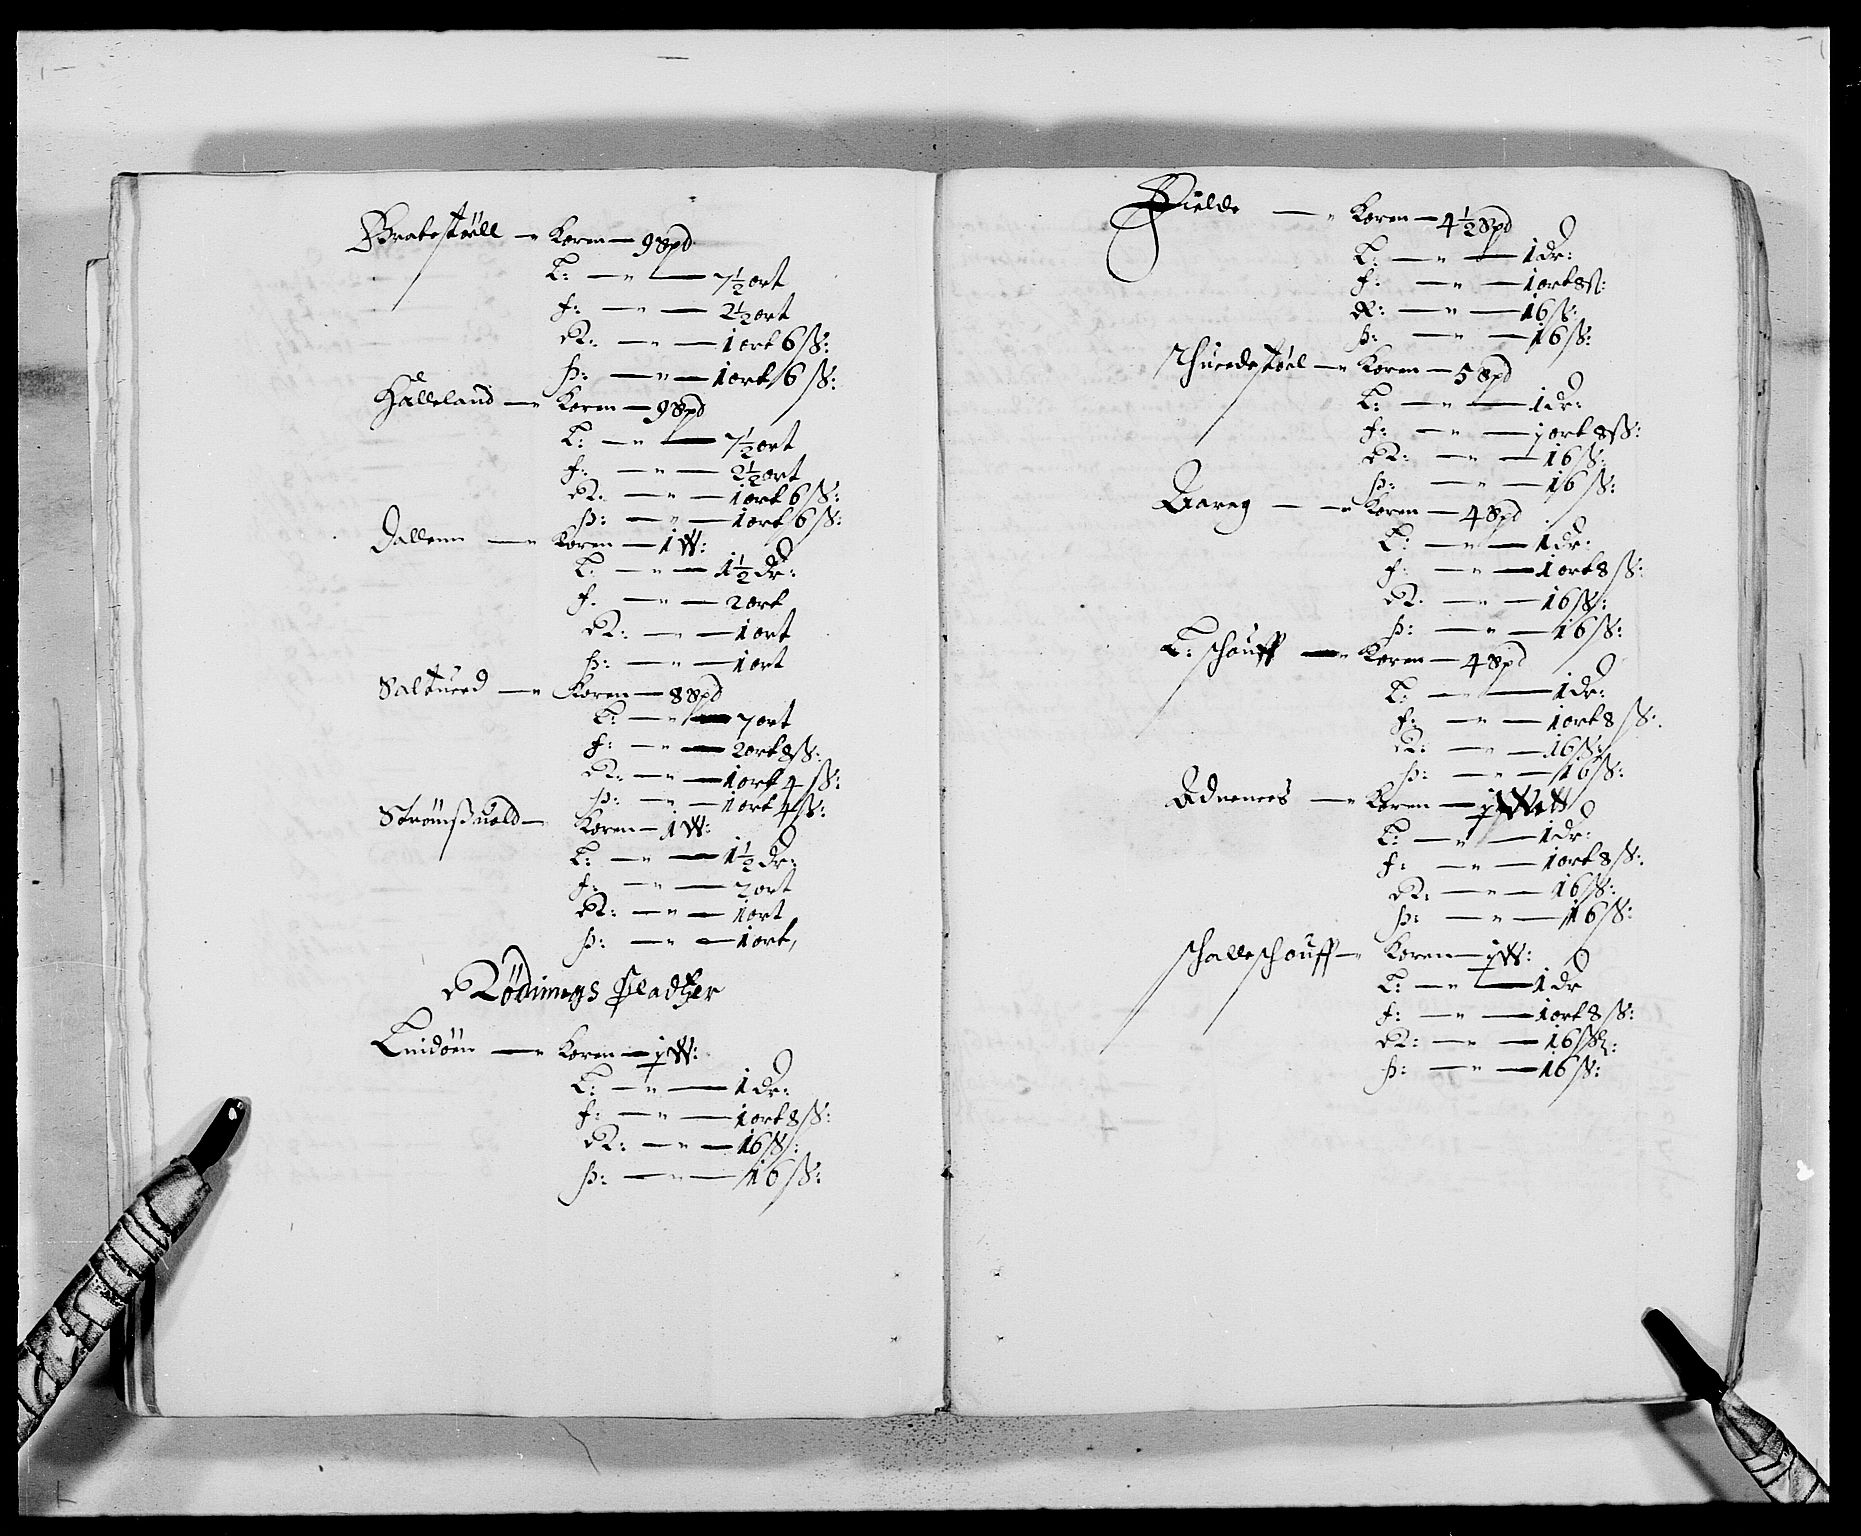 Bratestøell – " Koren – 9 Spd
L: – " – 7½ ort
f: – " – 2½ ort
R: – " – 1 ort 6 ß:
Þ: – " – 1 ort 6 ß:
Hålleland – " Koren – 9 Spd
L: – " – 7½ ort
f: – " – 2½ ort
R: – " – 1 ort 6 ß:
Þ: – " – 1 ort 6 ß:
Dallenn – " Koren – 1 W:
L: – " – 1½ dr:
f: – " – 2 ort
R: – " – 1 ort
Þ: – " – 1 ort
Saltued – " Koren – 8 Spd
L: – " – 7 ort
f: – " – 2 ort 8 ß:
R: – " – 1 ort 4 ß:
Þ: – " – 1 ort 4 ß:
Strømßuold – Koren – 1 W:
L: – " – 1½ dr:
f: – " – 2 ort
R: – " – 1 ort
Þ: – " – 1 ort,
Rødnings Pladtzer
Lindøen – " Koren – 1 W:
L: – " – 1 dr:
f: – " – 1 ort 8 ß:
R: – " – 16 ß:
Þ: – " – 16 ß:
Fielde – " Koren – 4½ Spd
L: – " – 1 dr:
f: – " – 1 ort 8 ß:
R: – " – 16 ß:
Þ: – " – 16 ß:
Thuedestøel – " Koren – 5 Spd
L: – " – 1 dr:
f: – " – 1 ort 8 ß:
R: – " – 16 ß:
Þ: – " – 16 ß:
Aareg – " Koren – 4 Spd
L: – " – 1 dr:
f: – " – 1 ort 8 ß:
R: – " – 16 ß:
Þ: – " – 16 ß:
L: schouff – " Koren – 4 Spd
L: – " – 1 dr:
f: – " – 1 ort 8 ß:
R: – " – 16 ß:
Þ: – " – 16 ß:
Adnenes – " Koren –
L: – " – 1 dr:
f: – " – 1 ort 8 ß:
R: – " – 16 ß:
Þ: – " – 16 ß:
schalleschouff – " Koren – 1 W:
L: – " – 1 dr
f: – " – 1 ort 8 ß:
R: – " – 16 ß:
Þ: – " – 16 ß: